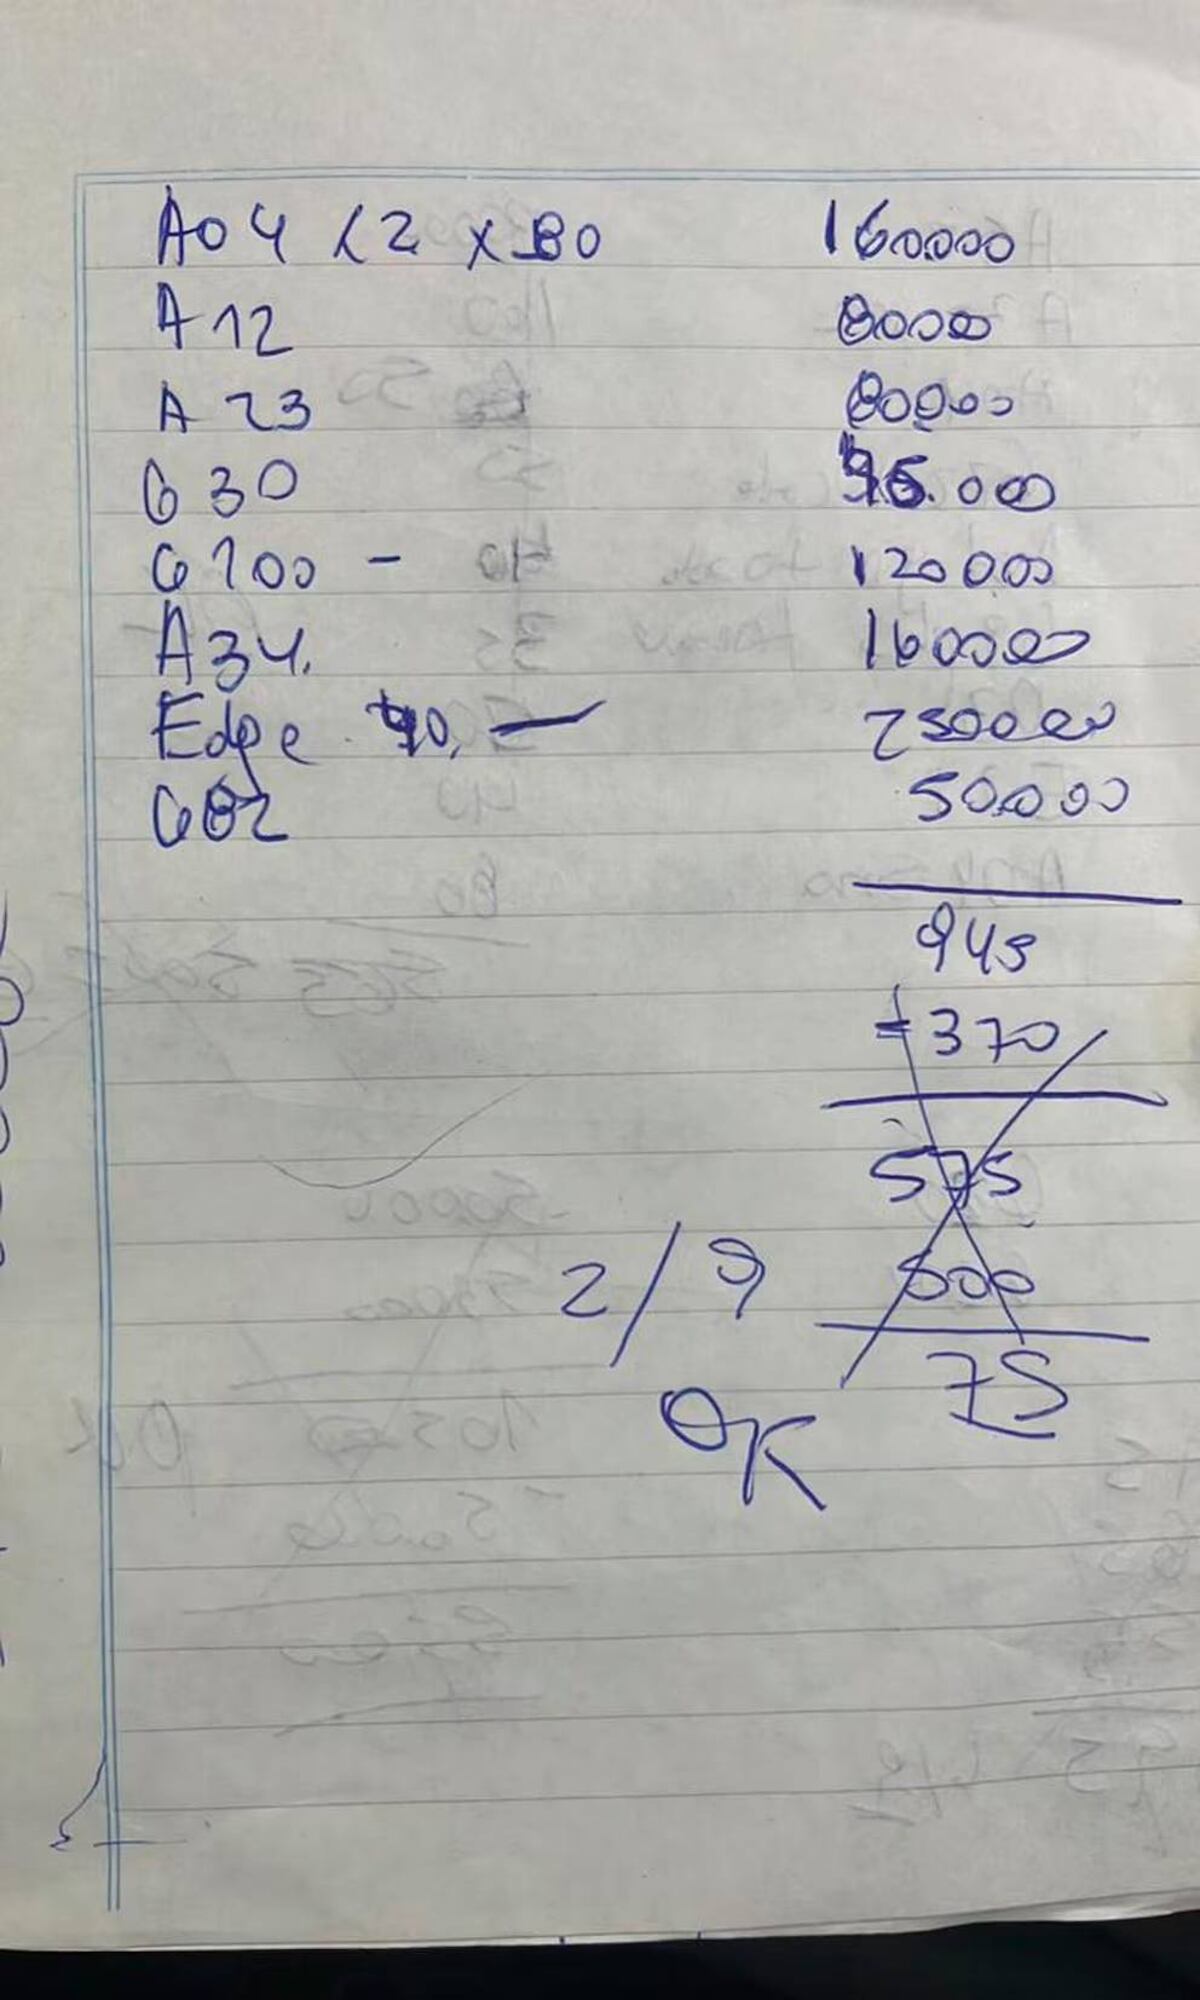 A04 (2 x 80 160.000
A12 80000
A 23 80000
G 30 95.000
G 100 - 120000
A34. 160000
Edge 40. — 250000
G82 50.000
945
- 370
575
500
2/9
75
OK